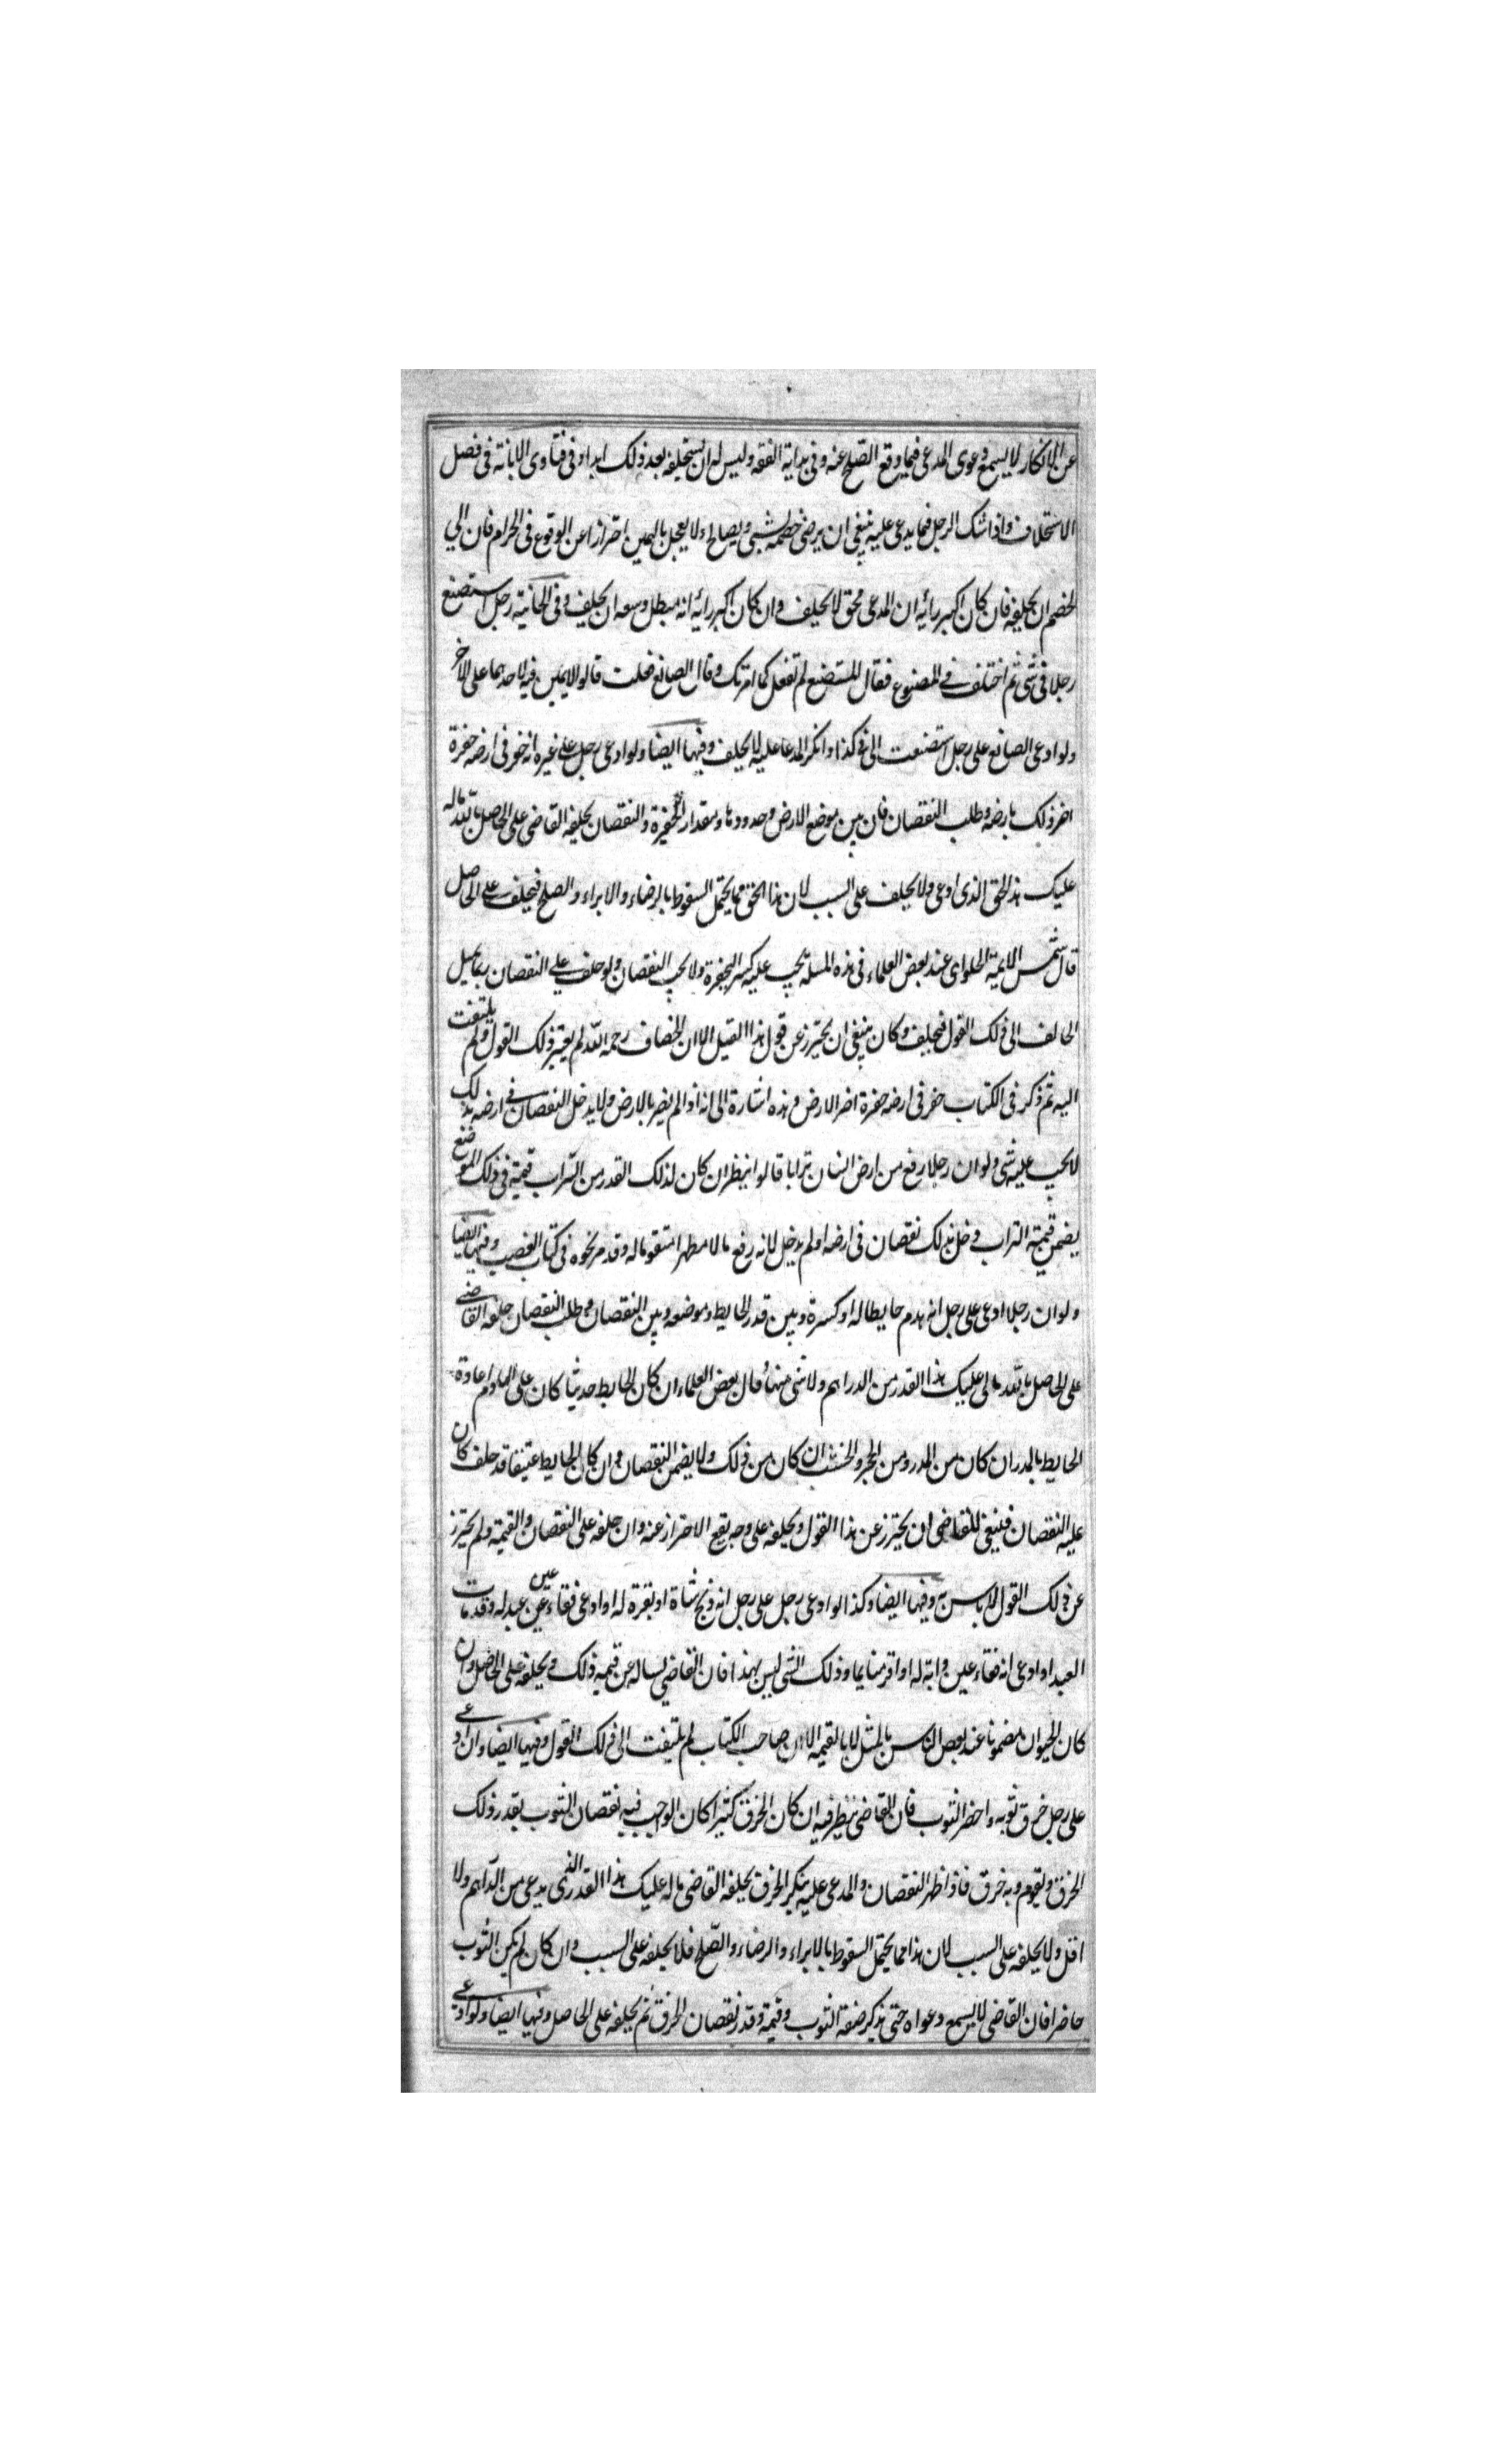 عن الانكار لا يسمع دعوى المدعى فيما وقع الصّلح عنه وفى بداية الفقه وليس له ان يستحلفه بعد ذلك ابدا وفى فتاوى الابانة فى فصل
الاستحلاف واذا شك الرجل فيما يدعى عليه ينبغى ان يرضى خصمه بشىء ويصالحه ولا يعجل باليمين احترازا عن الوقوع فى الحرام فان ابى
الخصم ان يحلفه فان كان اكبر رائيه ان المدعى محق لا يحلف وان كان اكبر رائيه انه مبطل وسعه ان يحلف وفى الخانية رجل استصنع
رجلا فى شى ثم اختلف فى المصنوع فقال المستصنع لم تفعل كما امرتك وقال الصانع فعلت قالوا لا يمين فيه لاحدهما على الاخر
ولو ادعى الصانع على رجل استصنعت الى فى كذا وانكر المدعا عليه لا يحلف وفيها ايضا ولو ادعى رجل على غيره انه حفر فى ارضه حفرة
اضر ذلك بارضه وطلب النقصان فان بين موضع الارض وحدودها ومقدار الحفيرة والنقصان يحلفه القاضى على الحاصل بالله ماله
عليك هذا الحق الذى ادعى ولا يحلف على السبب لان هذا الحق مما يحتمل السقوط بالرضاء والابراء والصلح فيحلف على الحاصل
قال شمس الايمة الحلواى عند بعض العلماء فى هذه المسلة يجب عليه كسر الحفرة ولا يجب النقصان ولو حلف على النقصان ربما يميل
الحالف الى ذلك القول فيحلف وكان ينبغى ان يحترز عن قول هذا القيل الا ان الخصاف رحمه الله لم يعتبر ذلك القول ولم يلتفت
اليه ثم ذكر فى الكتاب حفر فى ارضه حفرة اضر الارض وهذه اشارة الى انه اذا لم يضر بالارض ولا يدخل النقصان فى ارضه بذلك
لا يجب عليه شى ولو ان رجلا رفع من ارض انسان ترابا قالوا ينظر ان كان لذلك القدر من التراب قيمة فى ذلك الموضع
يضمن قيمة التراب دخل بذلك نقصان فى ارضه اولم يدخل لانه رفع مالا مطهرا متقوما له وقد مر نحوه فى كتاب الغصب وفيها ايضا
ولو ان رجلا ادعى على رجل انه هدم حايطا له او كسرة وبين قدر الحايط وموضعه وبين النقصان وطلب النقصان حلفه القاضى
على الحاصل بالله مالى عليك هذا القدر من الدراهم ولا شى منها قال بعض العلماء ان كان الحايط حديثا كان على الهادم اعادة
الحايط بالمدر ان كان من المدر ومن الحجر والخشب ان كان من ذلك ولا يضمن النقصان وان كان الحايط عتيقا قد حلف كان
عليه النقصان فينبغى للقاضى ان يحترز عن هذا القول ويحلفه على وجه يقع الاحتراز عنه وان حلفه على النقصان والقيمة ولم يحترز
عن ذلك القول لا باس به وفيها ايضا وكذا لو ادعى رجل على رجل انه ذبح شاة او بقرة له او ادعى فقاء عين عبد له وقد مات
العبد او ادعى انه فقاء عين دابة له او فرمنا بما وذلك الشى ليس بهذا فان القاضى يساله عن قيمة ذلك ويحلفه على الحاصل وان
كان الحيوان مضمونا عند بعض الناس بالمثل لا بالقيمة الا ان صاحب الكتاب لم يلتفت الى ذلك القول وفيها ايضا وان ادعى
على رجل خرق ثوبه واحضر الثوب فان القاضى ينظر فيه ان كان الخرق كثيرا كان الواجب فيه نقصان الثوب بقدر ذلك
الخرق ويقوم وبه خرق فاذا ظهر النقصان والمدعى عليه ينكر الخرق يحلفه القاضى ماله عليك هذا القدر الذى يدعى من الدّراهم ولا
اقل ولا يحلفه على السبب لان هذا مما يحتمل السقوط بالابراء والرضاء والصّلح فلا يحلفه على السبب وان كان لم يكن الثوب
حاضرا فان القاضى لا يسمع دعواه حتى يذكر صفة الثوب وقيمة وقدر نقصان الخرق ثم يحلفه على الحاصل وفيها ايضا ولو ادعى